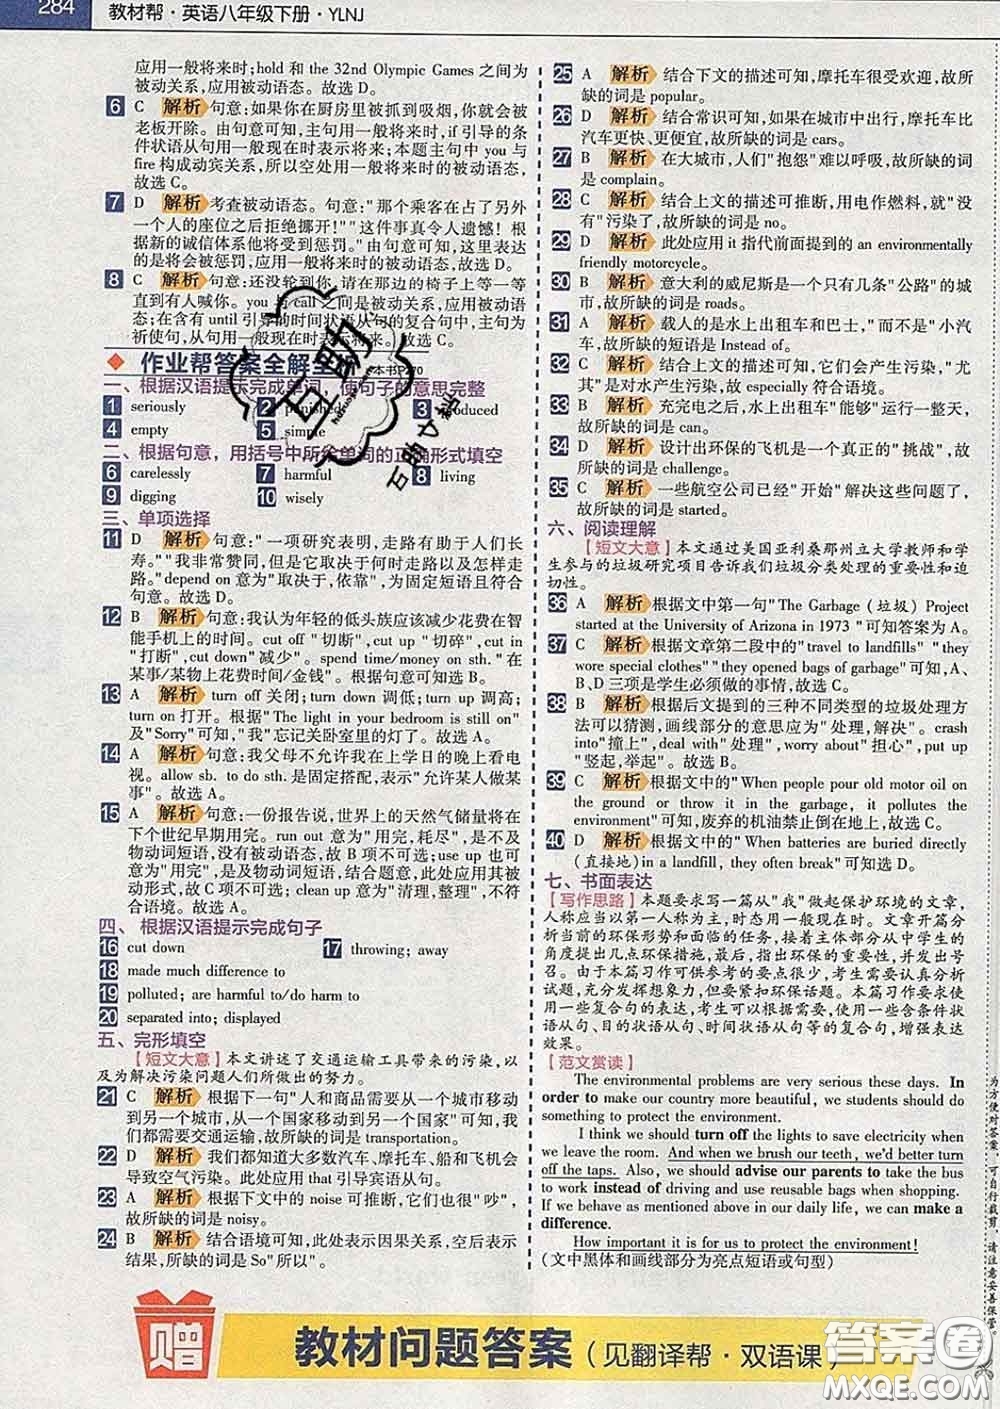 284 教材帮·英语八年级下册·YLNJ
应用一般将来时;hold 和 the 32nd Olympic Games 之间为
被动关系,应用被动语态。故选 D。
6 C 解析 句意:如果你在厨房里被抓到吸烟,你就会被
老板开除。由句意可知,主句用一般将来时,if 引导的条
件状语从句用一般现在时表示将来;本题主句中 you 与
fire 构成动宾关系,所以空处用一般将来时的被动语态,
故选 C。
7 D 解析 考查被动语态。句意:"那个乘客在占了另外
一个人的座位之后拒绝挪开!""这件事真令人遗憾!根
据新的诚信体系他将受到惩罚。"由句意可知,这里表达
的是将会被惩罚,应用一般将来时的被动语态,故选 D。
8 C 解析 句意:还没轮到你,请在那边的椅子上等一等
直到有人喊你。you 与 call 之间是被动关系,应用被动语
态;在含有 until 引导的时间状语从句的复合句中,主句为
祈使句,从句用一般现在时表示将来。故选 C。
作业帮答案全解全
一、根据汉语提示完成单词,使句子的意思完整
1 seriously 2 punished 3 produced
4 empty 5 simple
二、根据句意,用括号中所给单词的正确形式填空
6 carelessly 7 harmful 8 living
9 digging 10 wisely
三、单项选择
11 D 解析 句意:"一项研究表明,走路有助于人们长
寿。""我非常赞同,但这取决于何时走路以及怎样走
路。"depend on 意为"取决于,依靠",与语境适合且符合
句意。故选 D。
12 B 解析 句意:我认为年轻的低头族应该减少花费在智
能手机上的时间。cut off "切断",cut up "切碎",cut in
"打断",cut down"减少"。spend time/money on sth."在
某事/某物上花费时间/金钱"。根据句意可知选 B。
13 A 解析 turn off 关闭;turn down 调低;turn up 调高;
turn on 打开。根据"The light in your bedroom is still on"
及"Sorry"可知,"我"忘记关卧室里的灯了。故选 A。
14 A 解析 句意:我父母不允许我在上学的晚上看电
视。allow sb. to do sth.是固定搭配,表示"允许某人做某
事"。故选 A。
15 A 解析 句意:一份报告说,世界上的天然气储量将在
下个世纪早期用完。run out 意为"用完,耗尽",是不及
物动词短语,没有被动语态,故 B 项不可选;use up 也可
意为"用完",是及物动词短语,结合题意,此处应用其被
动形式,故 C 项不可选;clean up 意为"清理,整理",不符
合语境。故选 A。
四、根据汉语提示完成句子
16 cut down 17 throwing; away
18 made much difference to
19 polluted; are harmful to/do harm to
20 separated into; displayed
五、完形填空
【短文大意】本文讲述了交通运输工具带来的污染,以
及为解决污染问题人们所做出的努力。
21 C 解析 根据下一句"人和商品需要从一个城市移动
到另一个城市,从一个国家移动到另一个国家"可知,我
们都需要交通运输,故所缺的词是 transportation。
22 D 解析 我们都知道大多数汽车、摩托车、船和飞机会
导致空气污染。此处应用 that 引导宾语从句。
23 A 解析 根据下文中的 noise 可推断,它们也很"吵",
故所缺的词是 noisy。
24 B 解析 结合语境可知,此处表示因果关系,空后表示
结果,所缺的词是 So"所以"。
25 A 解析 结合下文的描述可知,摩托车很受欢迎,故所
缺的词是 popular。
26 D 解析 结合常识可知,如果在城市中出行,摩托车比
汽车更快、更便宜,故所缺的词是 cars。
27 B 解析 在大城市,人们"抱怨"难以呼吸,故所缺的词
是 complain。
28 C 解析 结合上文的描述可推断,用电作燃料,就"没
有"污染了,故所缺的词是 no。
29 D 解析 此处应用 it 指代前面提到的 an environmentally
friendly motorcycle。
30 B 解析 意大利的威尼斯是一个只有几条"公路"的城
市,故所缺的词是 roads。
31 A 解析 载人的是水上出租车和巴士,"而不是"小汽
车,故所缺的短语是 Instead of。
32 C 解析 结合上文的描述可知,它们会产生污染,"尤
其"是对水产生污染,故 especially 符合语境。
33 B 解析 充完电之后,水上出租车"能够"运行一整天,
故所缺的词是 can。
34 D 解析 设计出环保的飞机是一个真正的"挑战",故
所缺的词是 challenge。
35 C 解析 一些航空公司已经"开始"解决这些问题了,
故所缺的词是 started。
六、阅读理解
【短文大意】本文通过美国亚利桑那州立大学教师和学
生参与的垃圾研究项目告诉我们垃圾分类处理的重要性和迫
切性。
36 A 解析 根据文中第一句"The Garbage (垃圾) Project
started at the University of Arizona in 1973 "可知答案为 A。
37 C 解析 根据文章第二段中的"travel to landfills" "they
wore special clothes" "they opened bags of garbage"可知,A、
B、D 三项是学生必须做的事情,故选 C。
38 B 解析 根据后文提到的三种不同类型的垃圾处理方
法可以猜测,画线部分的意思应为"处理,解决"。crash
into"撞上",deal with"处理",worry about"担心",put up
"竖起,举起"。故选 B。
39 C 解析 根据文中的"When people pour old motor oil on
the ground or throw it in the garbage, it pollutes the
environment"可知,废弃的机油禁止倒在地上,故选 C。
40 D 解析 根据文中的"When batteries are buried directly
(直接地)in a landfill, they often break"可知选 D。
七、书面表达
【写作思路】本题要求写一篇从"我"做起保护环境的文章,
人称应当以第一人称为主,时态用一般现在时。文章开篇分
析当前的环保形势和面临的任务,接着主体部分从中学生的
角度提出几点环保措施,最后,指出环保的重要性,并发出号
召。由于本篇习作可供参考的要点很少,考生需要认真分析
试题,充分发挥想象力,但要紧扣环保话题。本篇习作要求使
用一些复合句的表达,考生可以根据需要,使用一些含条件状
语从句、目的状语从句、时间状语从句等的复合句,增强表达
效果。
【范文赏读】
The environmental problems are very serious these days. In
order to make our country more beautiful, we students should do
something to protect the environment.
I think we should turn off the lights to save electricity when
we leave the room. And when we brush our teeth, we'd better turn
off the taps. Also, we should advise our parents to take the bus
to work instead of driving and use reusable bags when shopping.
If we behave as mentioned above in our daily life, we can make a
difference.
How important it is for us to protect the environment!
(文中黑体和画线部分为亮点短语或句型)
为方便对答案,可自行裁剪,请注意妥善保管
赠 教材问题答案(见翻译帮·双语课)
答案圈
MXQE.COM